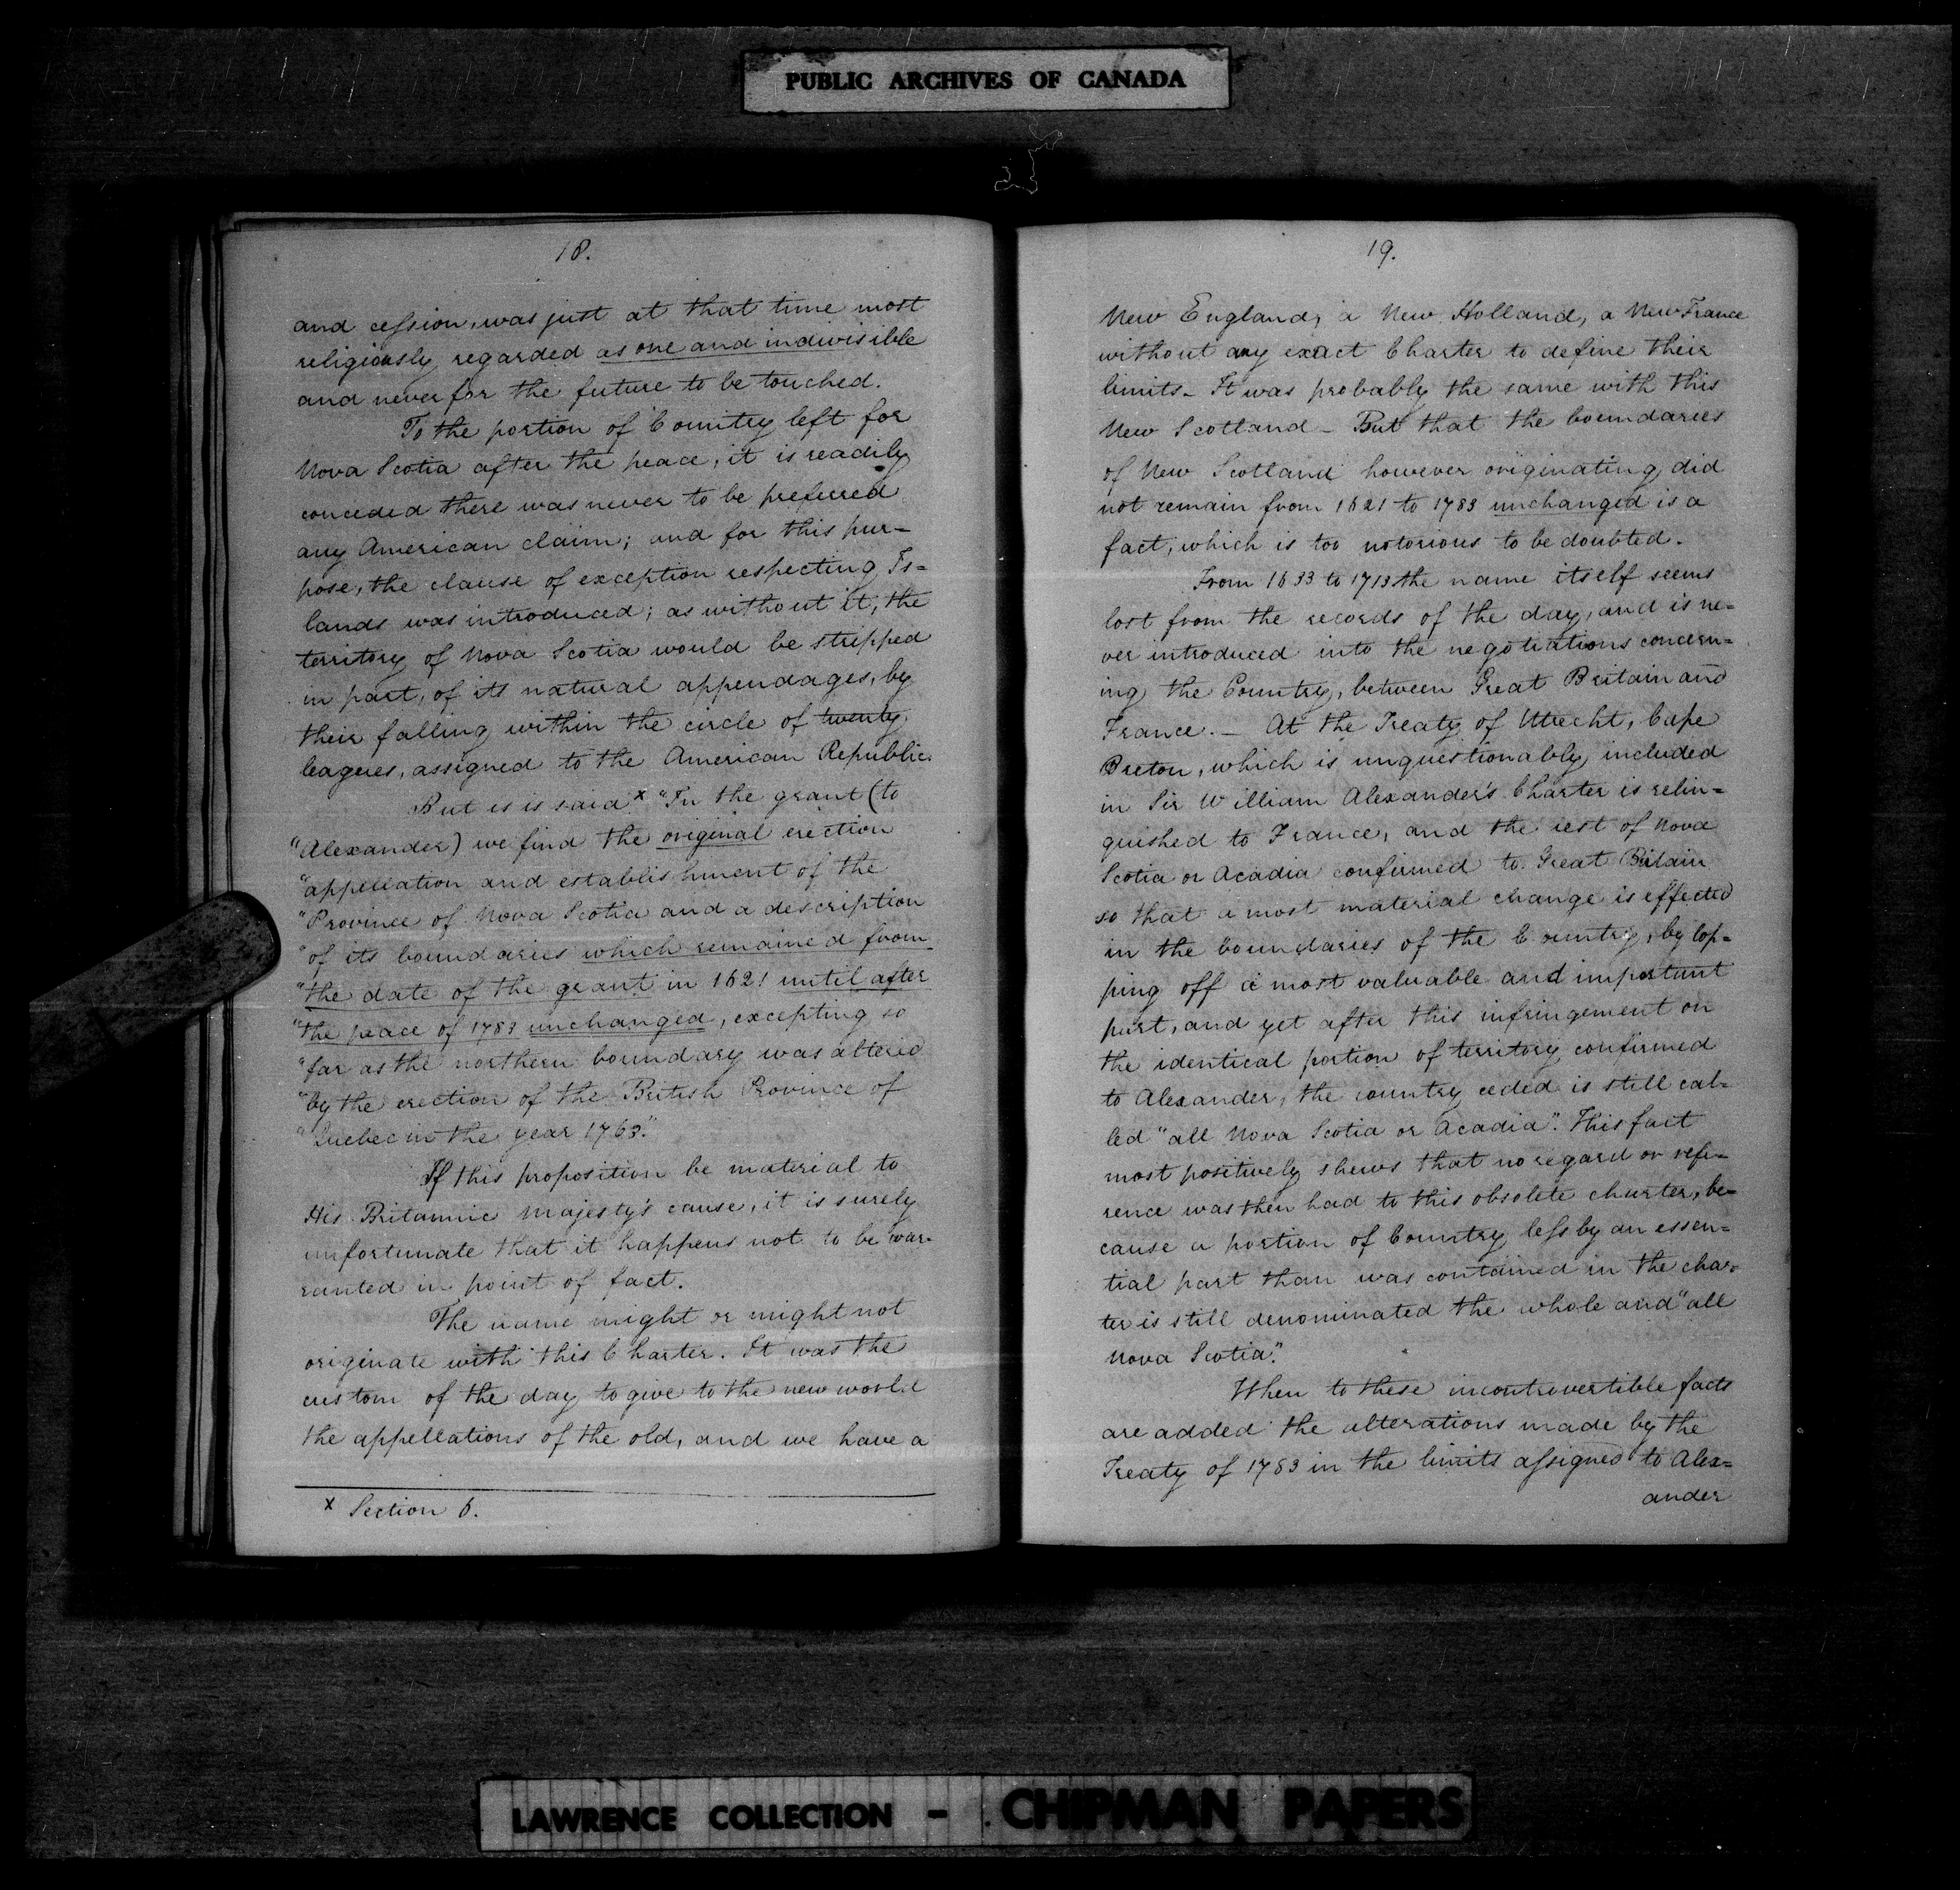 PUBLIC ARCHIVES OF CANADA
18.
and cession, was just at that time most
religiously regarded as one and indivisible
and never for the future to be touched.
To the portion of Country left for
Nova Scotia after the peace, it is readily
conceded there was never to be preferred
any American claim; and for this pur-
pose, the clause of exception respecting Is=
lands was introduced; as without it, the
territory of Nova Scotia would be stripped
in part, of its natural appendages, by
their falling within the circle of twenty
leagues, assigned to the American Republic.
But is is said x "In the grant (to
"Alexander) we find the original erection
"appellation and establishment of the
"Province of Nova Scotia and a description
"of its boundaries which remained from
"the date of the grant in 1621 until after
"the peace of 1783 unchanged, excepting so
"far as the northern boundary was altered
"by the erection of the British Province of
"Quebec in the year 1763."
If this proposition be material to
His Britannic Majesty's cause, it is surely
unfortunate that it happens not to be war-
ranted in point of fact.
The name might or might not
originate with this Charter. It was the
custom of the day to give to the new world
the appellations of the old, and we have a
x Section 6.
19.
New England, a New Holland, a New France
without any exact Charter to define their
limits - It was probably the same with this
New Scotland - But that the boundaries
of New Scotland however originating did
not remain from 1621 to 1783 unchanged is a
fact, which is too notorious to be doubted.
From 1633 to 1713 the name itself seems
lost from the records of the day, and is ne=
ver introduced into the negotiations concern=
ing the Country, between Great Britain and
France. - At the Treaty of Utrecht, Cape
Breton, which is unquestionably included
in Sir William Alexander's Charter is relin=
quished to France, and the rest of Nova
Scotia or Acadia confirmed to Great Britain
so that a most material change is effected
in the boundaries of the Country, by lop=
ping off a most valuable and important
part, and yet after this infringement on
the identical portion of territory confirmed
to Alexander, the country ceded is still cal=
led "all Nova Scotia or Acadia". This fact
most positively shews that no regard or refe=
rence was then had to this obsolete charter, be=
cause a portion of Country less by an essen=
tial part than was contained in the char=
ter is still denominated the whole and "all
Nova Scotia".
When to these incontrovertible facts
are added the alterations made by the
Treaty of 1783 in the limits assigned to Alex=
ander
LAWRENCE COLLECTION - CHIPMAN PAPERS